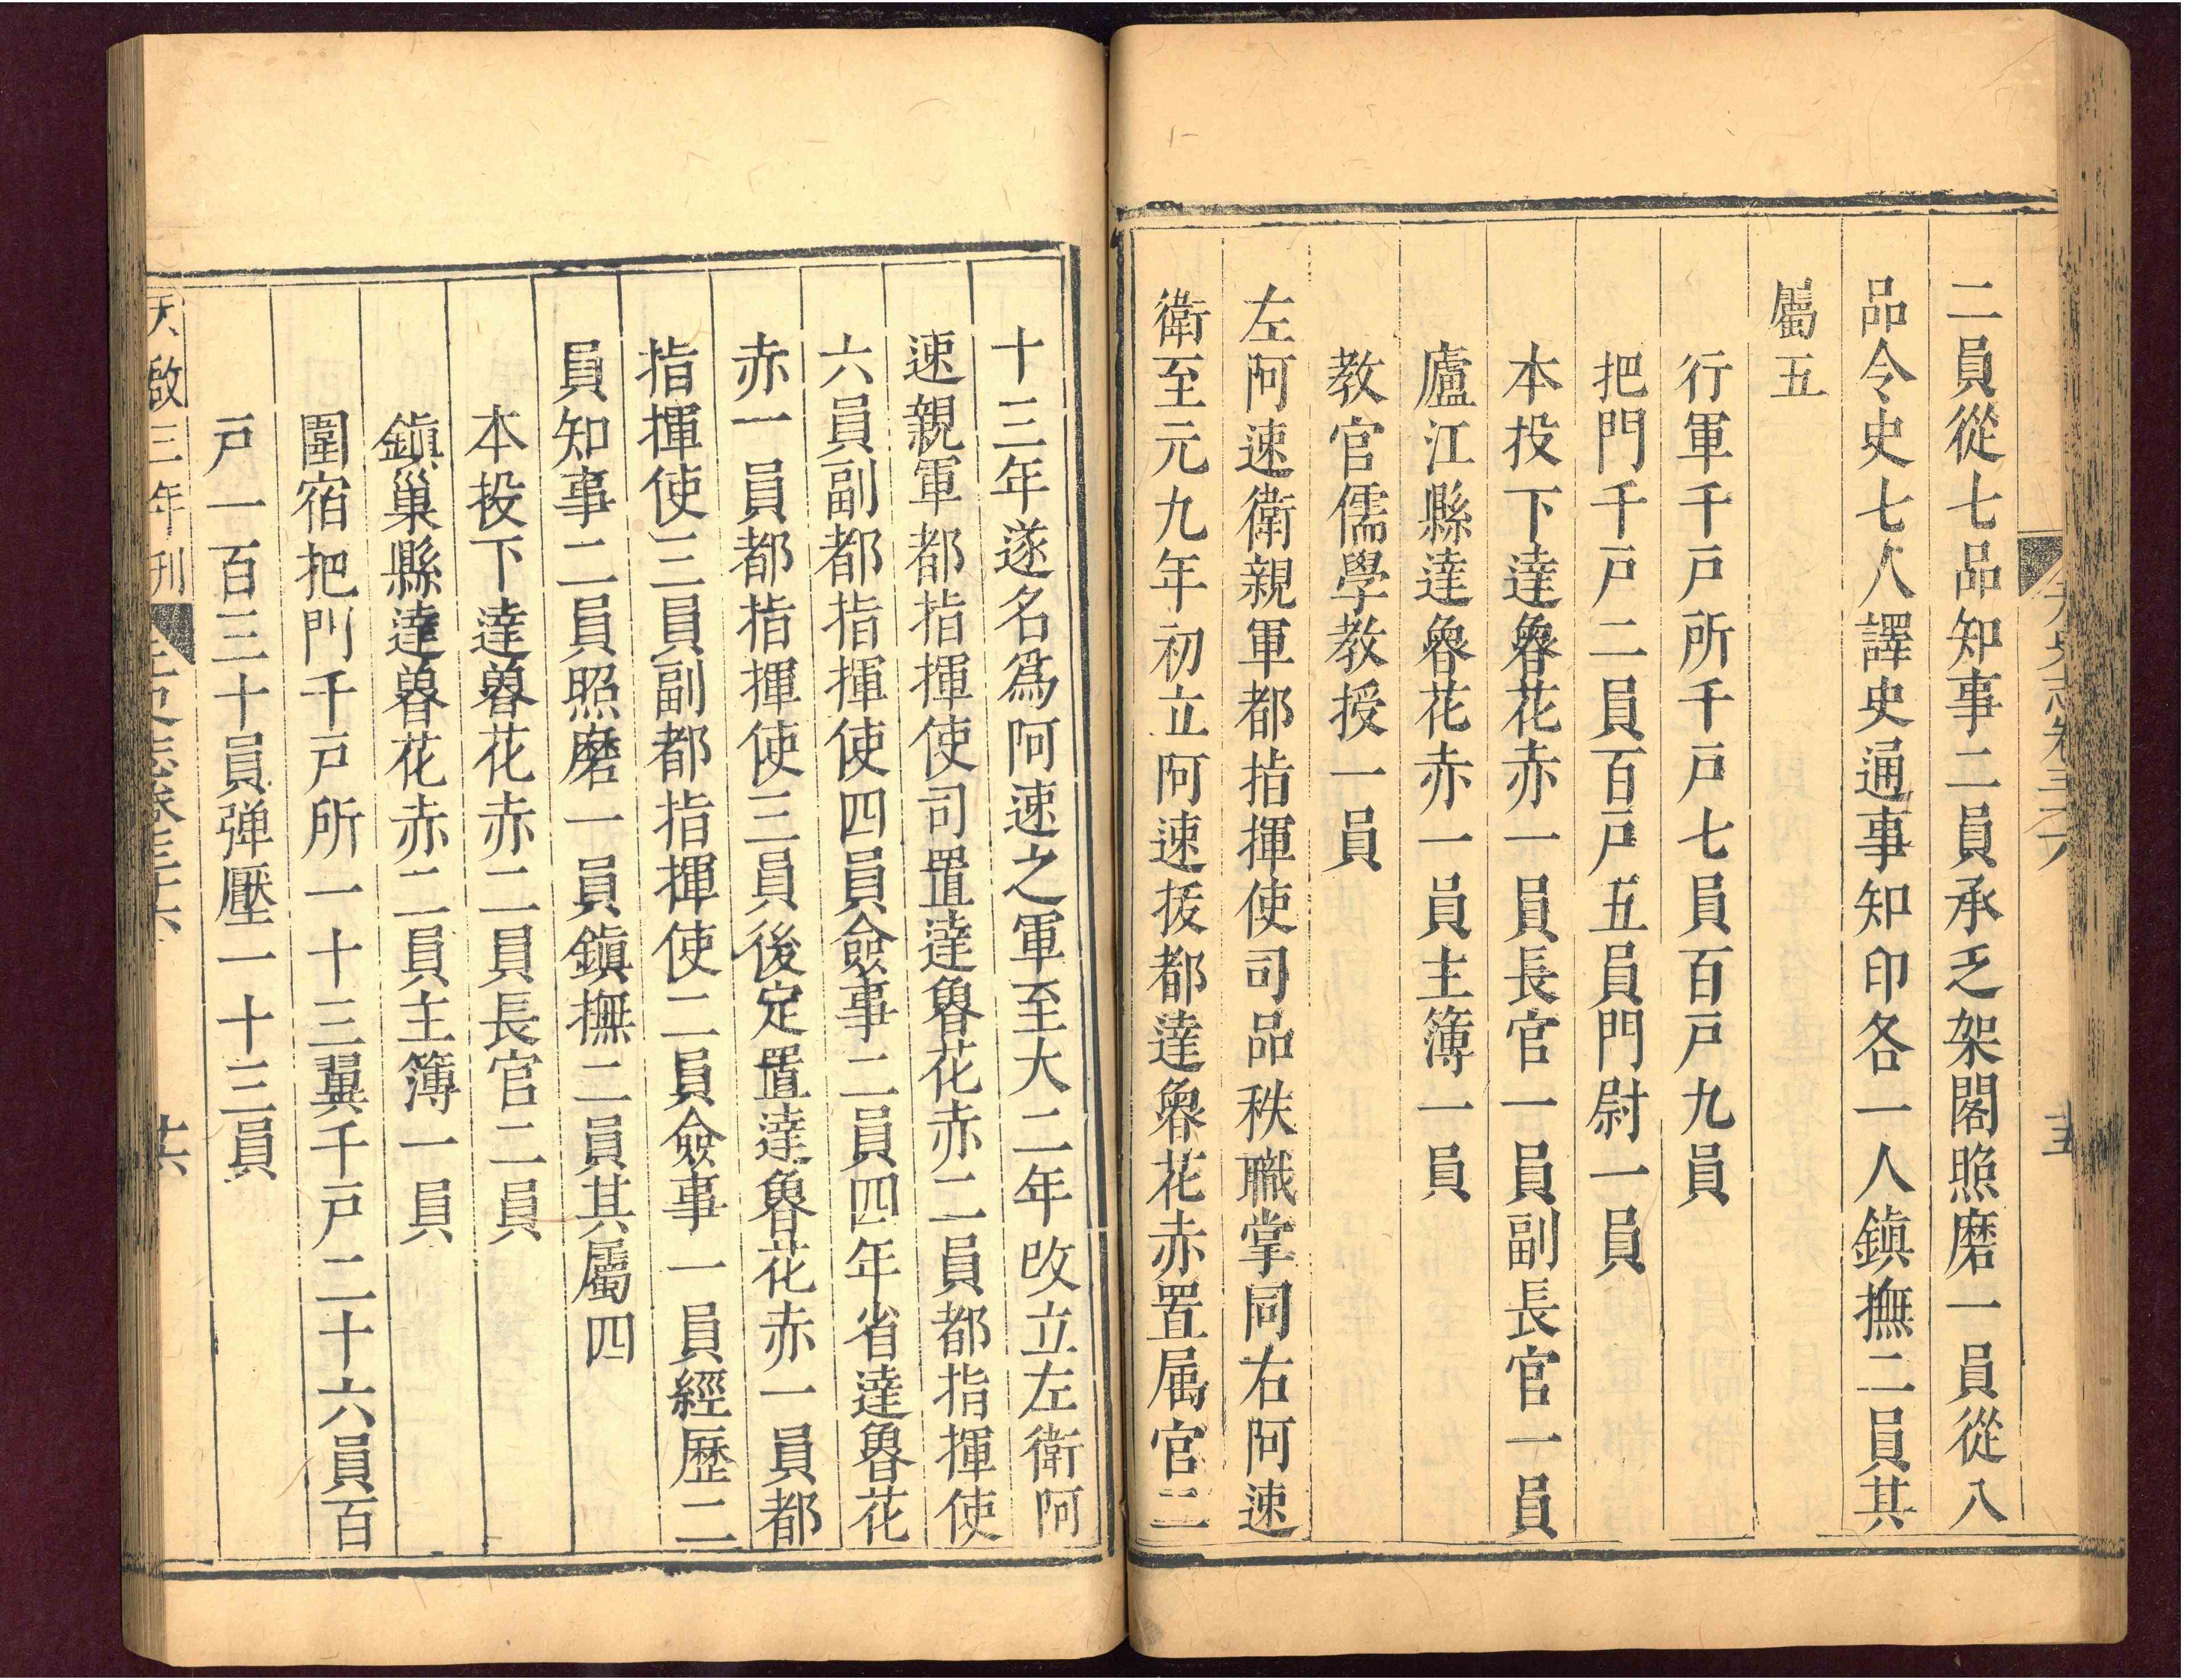 二員從七品知事二員承乏架閣照磨一員從八
品令史七人譯史通事知印各一人鎮撫二員其
屬五
行軍千戸所千戸七員百戸九員
把門千戸二員百戸五員門尉一員
本投下達魯花赤一員長官一員副長官一員
廬江縣達魯花赤一員主簿一員
教官儒學教授一員
左阿速衛親軍都指揮使司品秩職掌同右阿速
衛至元九年初立阿速拔都達魯花赤置属官二
十三年遂名爲阿速之軍至大二年改立左衛阿
速親軍都指揮使司置達魯花赤二員都指揮使
六員副都指揮使四員僉事二員四年省達魯花
赤一員都指揮使三員後定置達魯花赤一員都
指揮使三員副都指揮使二員僉事一員經歷二
員知事二員照磨一員鎮撫二員其屬四
本投下達魯花赤二員長官二員
鎮巢縣達魯花赤二員主簿一員
圍宿把門千戸所一十三翼千戸二十六員百
戸一百三十員弹壓一十三員
天啟三年刊 志卷三十六 十六